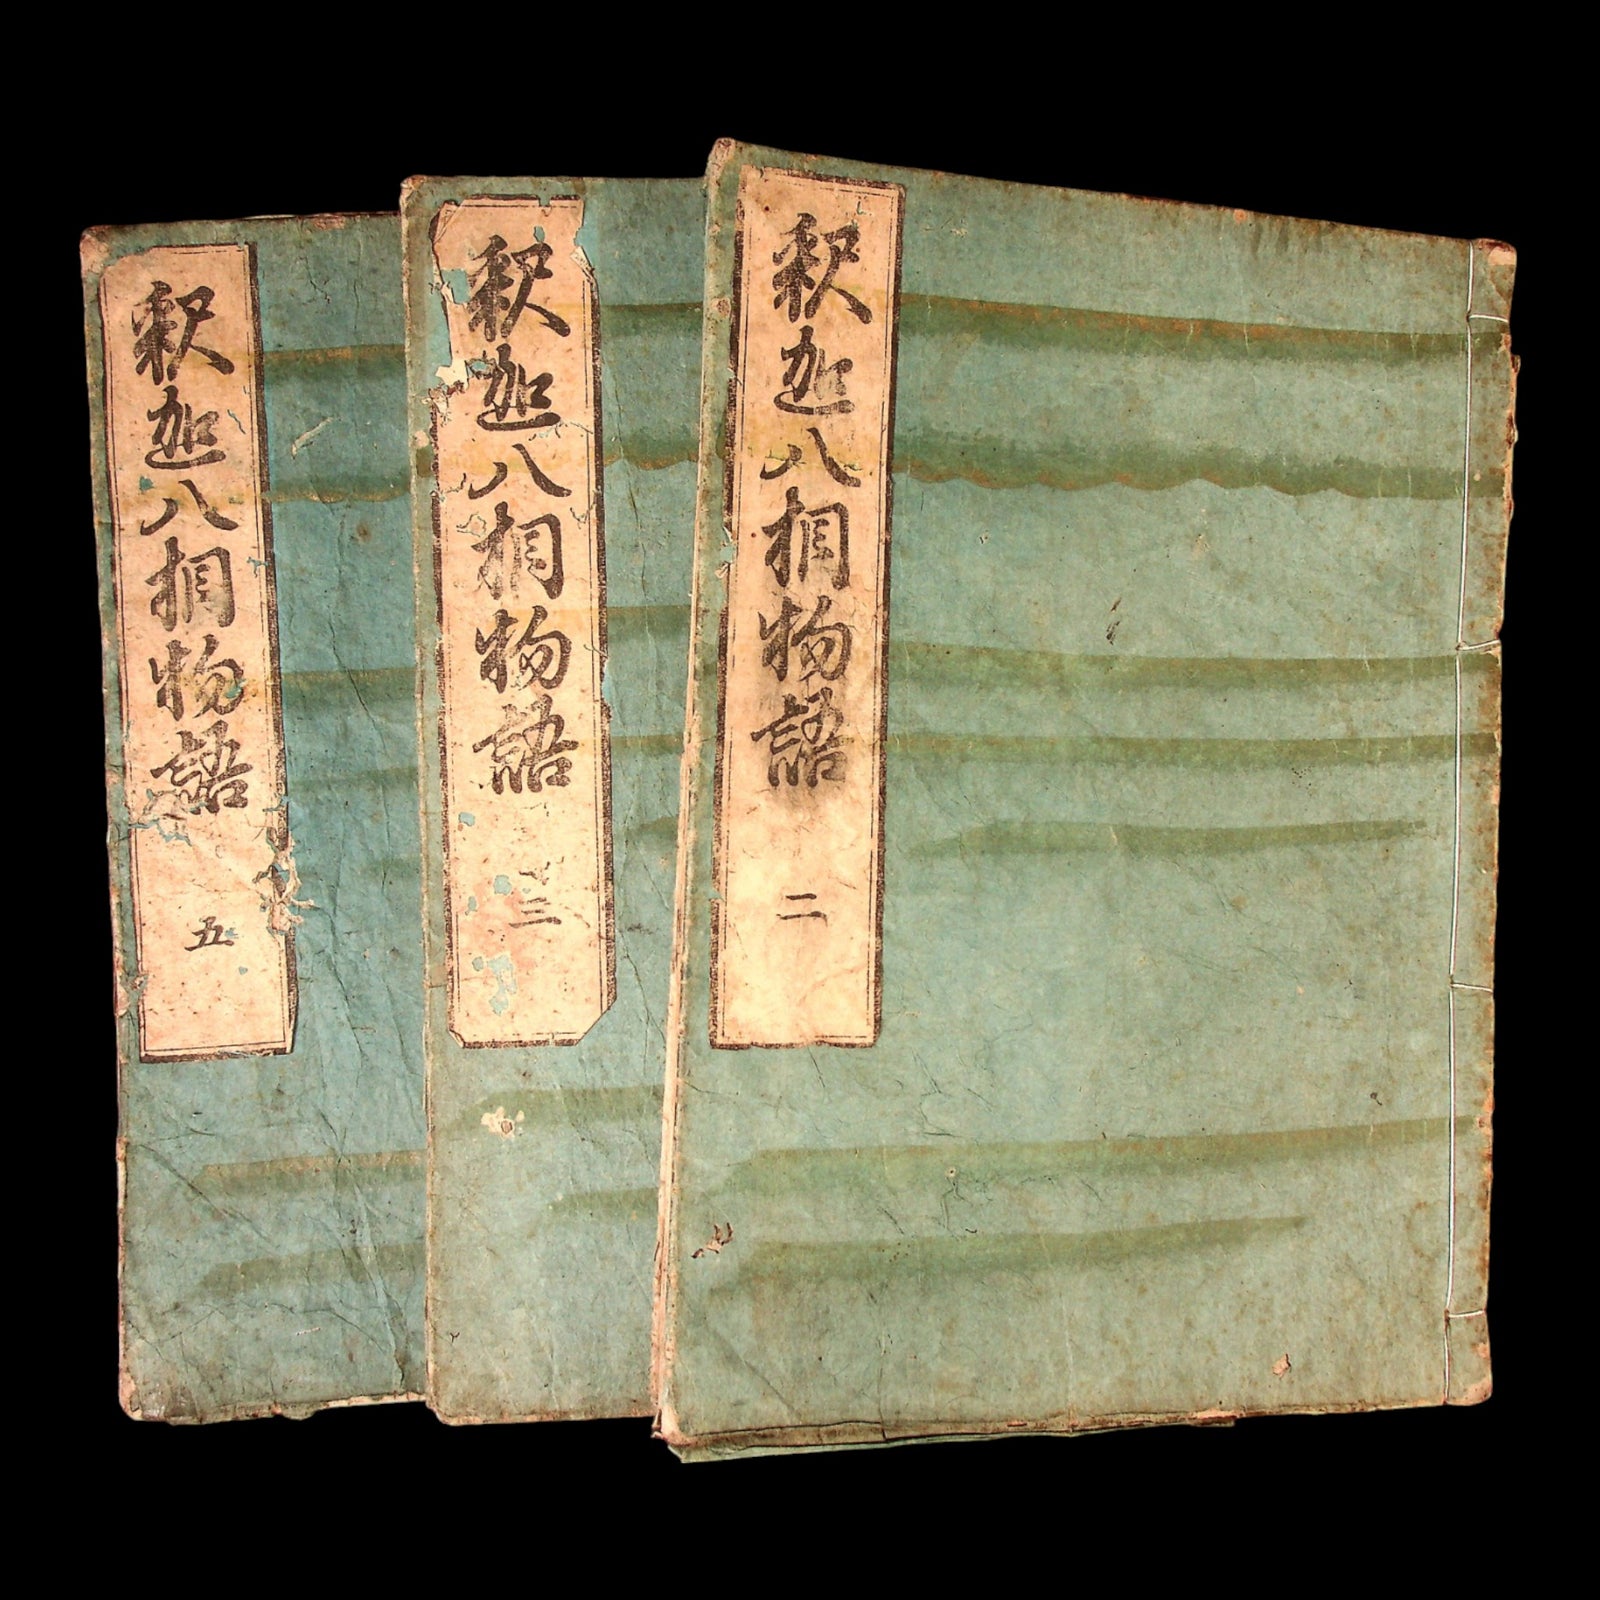 釈迦八相物語
二
釈迦八相物語
三
釈迦八相物語
五